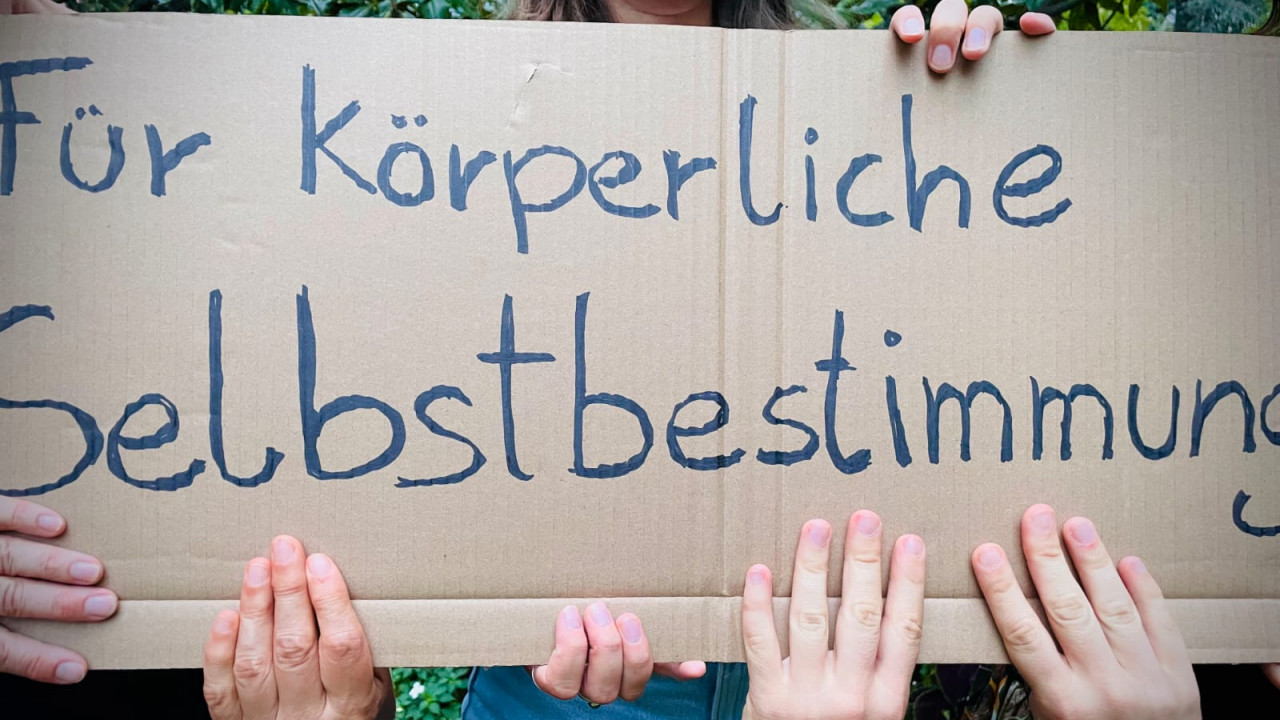 Für körperliche
Selbstbestimmung